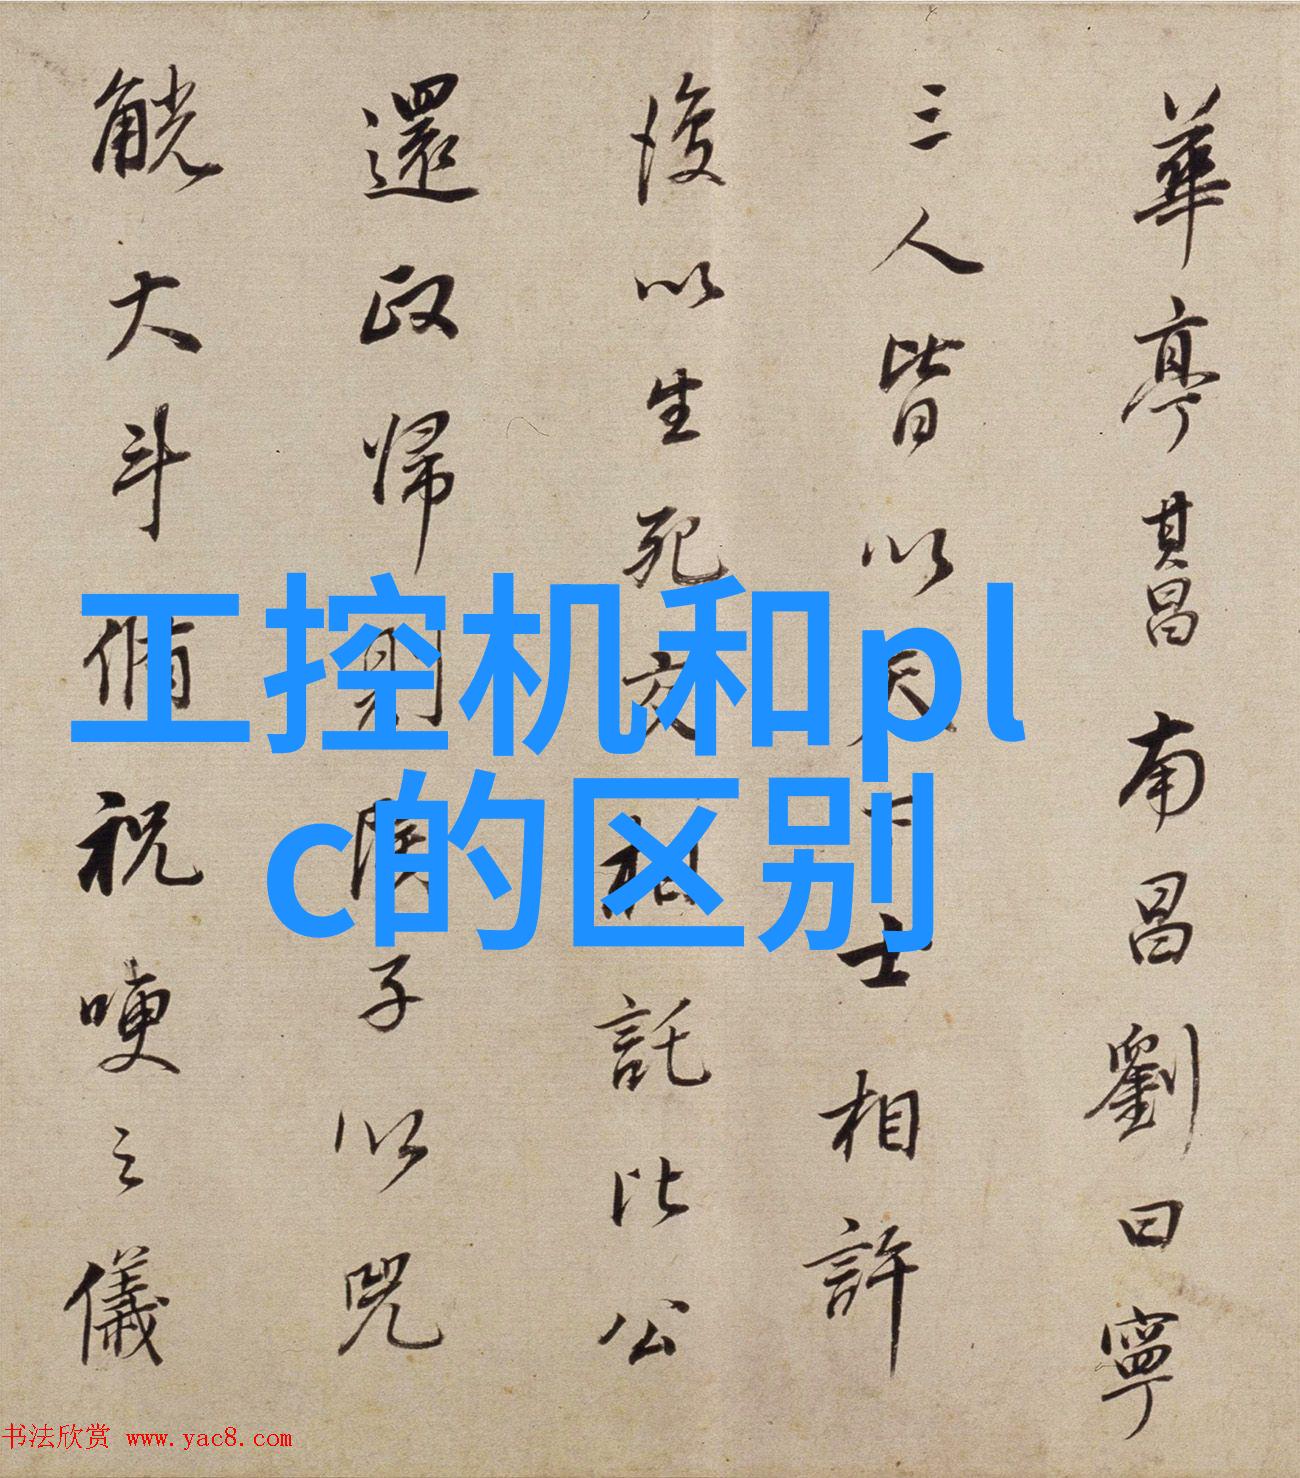 工控机和pl
c的区别
華亭其昌南昌劉曰寧
三人皆以天下士相許
後以生死交相託比公
還政帰劉侯子以兕
觥大斗脩祝哽之儀
书法欣赏 www.yac8.com